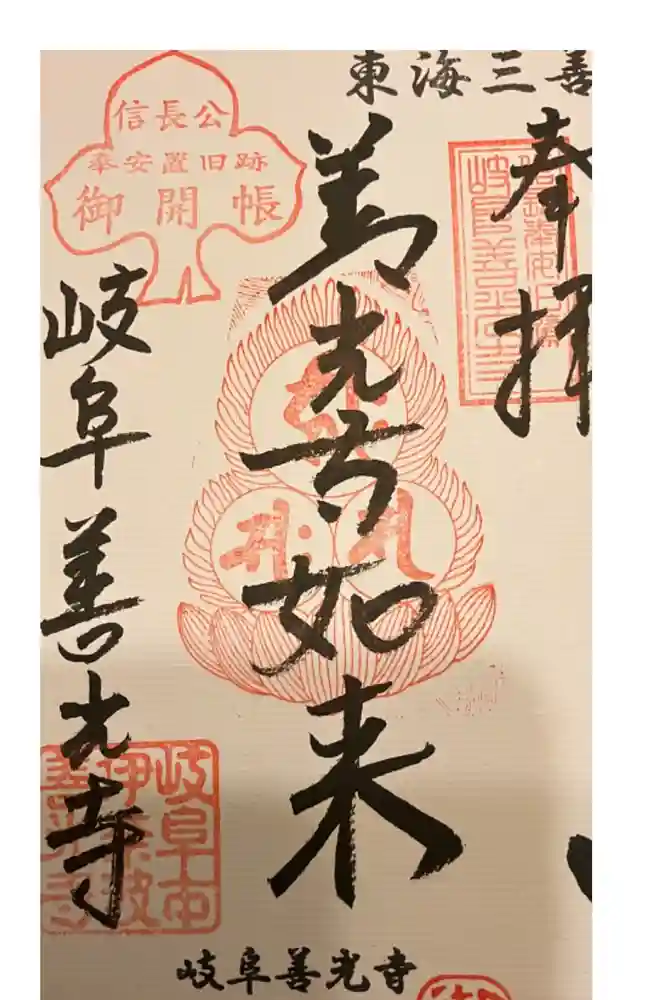 東海三善
奉拝
善光寺如来
信長公
奉安置旧跡
御開帳
岐阜善光寺
岐阜市
伊奈波
善光寺
岐阜善光寺